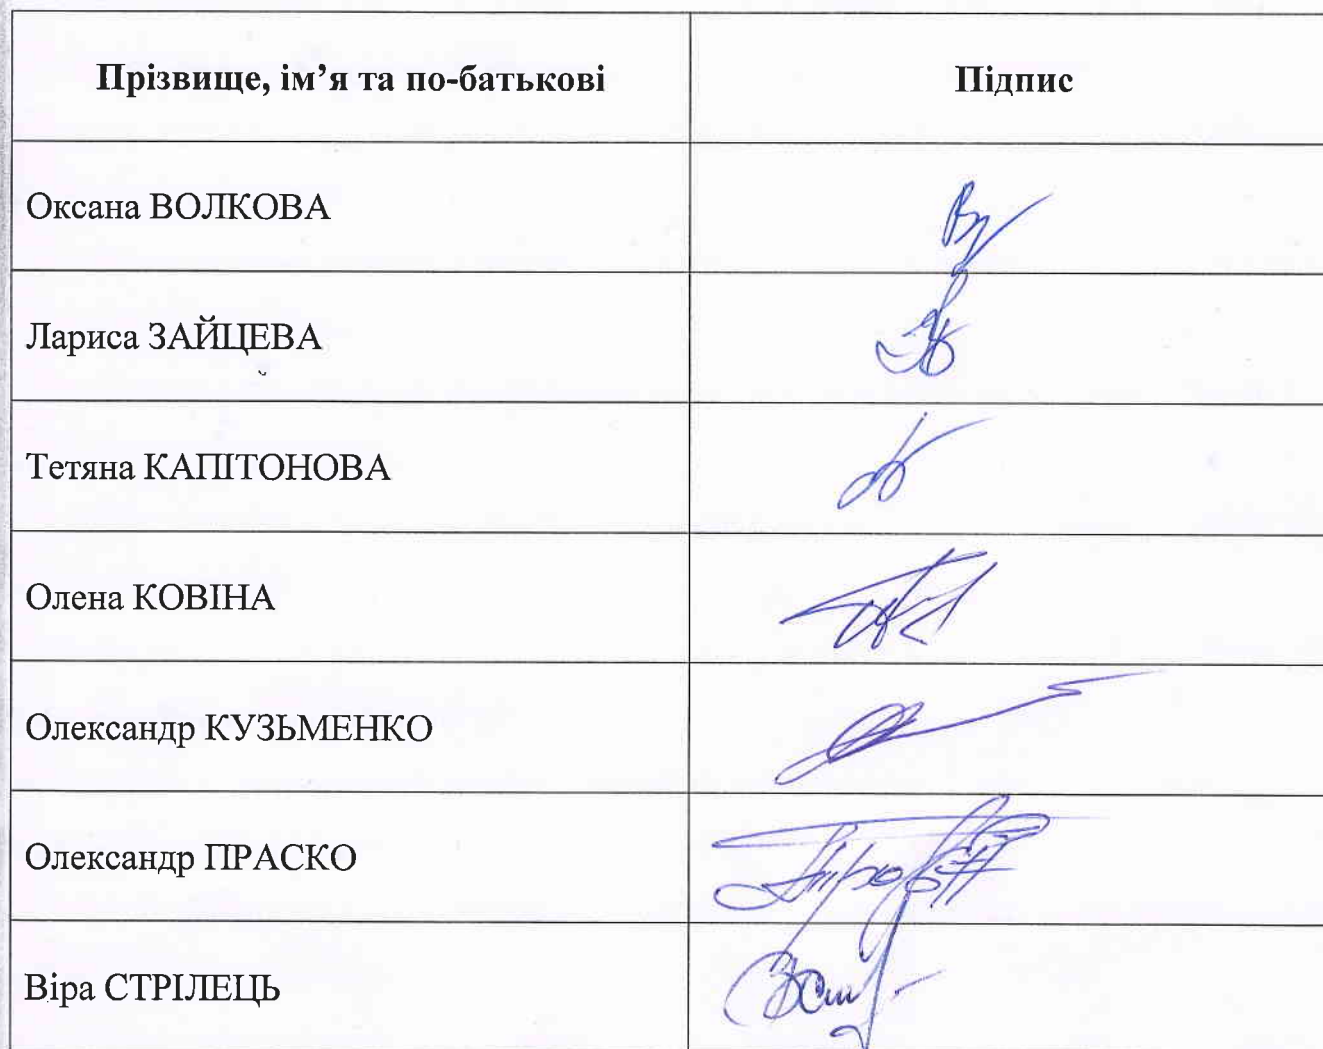 Прізвище, ім’я та по-батькові Підпис
Оксана ВОЛКОВА
Лариса ЗАЙЦЕВА
Тетяна КАПІТОНОВА
Олена КОВІНА
Олександр КУЗЬМЕНКО
Олександр ПРАСКО
Віра СТРІЛЕЦЬ